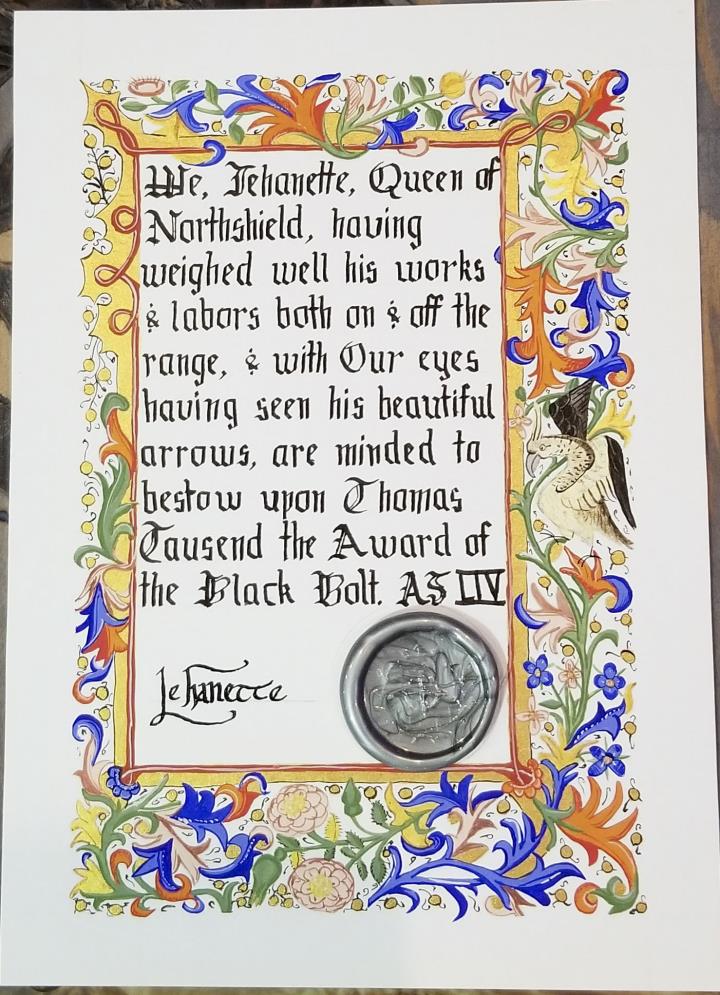 We, Jehanette, Queen of
Northshield, having
weighed well his works
& labors both on & off the
range, & with Our eyes
having seen his beautiful
arrows, are minded to
bestow upon Thomas
Tausend the Award of
the Black Bolt. AS LIV
Jehanette